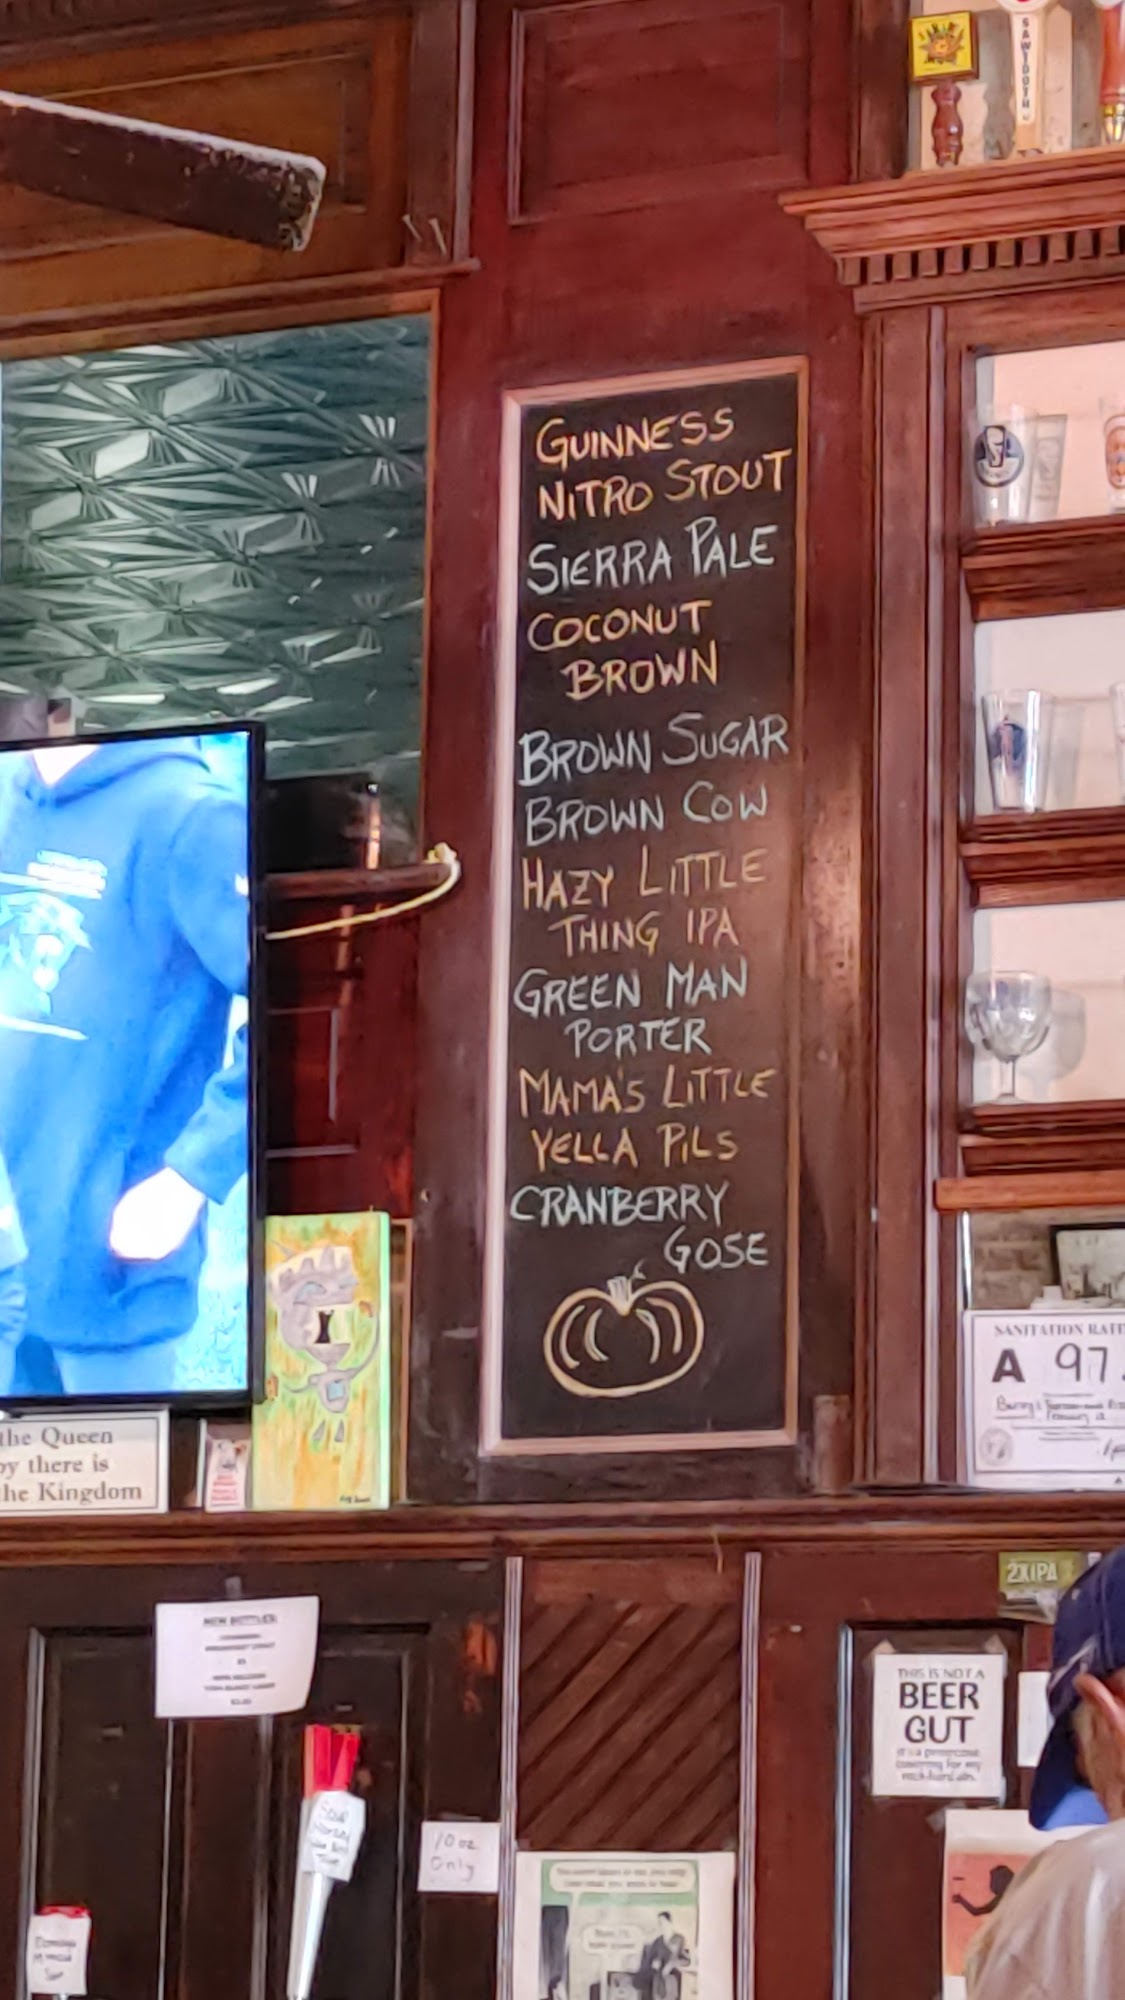 SAWTOOTH
GUINNESS
NITRO STOUT
SIERRA PALE
COCONUT
BROWN
BROWN SUGAR
BROWN COW
HAZY LITTLE
THING IPA
GREEN MAN
PORTER
MAMA'S LITTLE
YELLA PILS
CRANBERRY
GOSE
SANITATION RATI
A 97.
the Queen
py there is
the Kingdom
2XIPA
NEW BOTTLES
THIS IS NOT A
BEER
GUT
it's a protective
covering for my
rock hard abs.
10 oz
Only
Sour